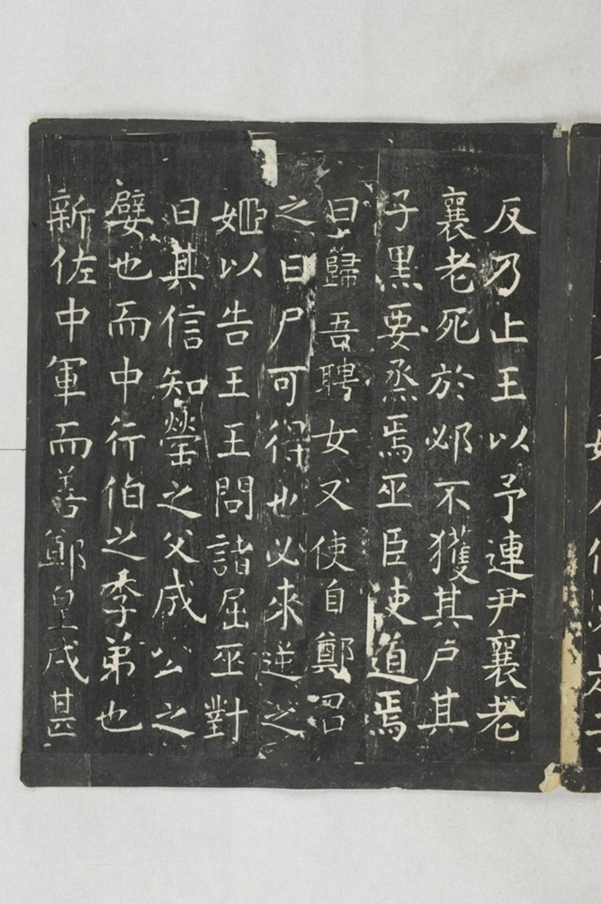 反乃止王以予連尹襄老
襄老死於邲不獲其尸其
子黑要烝焉巫臣使道焉
曰歸吾聘女又使自鄭召
之曰尸可得也必來逆之
姬以告王王問諸屈巫對
曰其信知罃之父成公之
嬖也而中行伯之季弟也
新佐中軍而善鄭皇戌甚